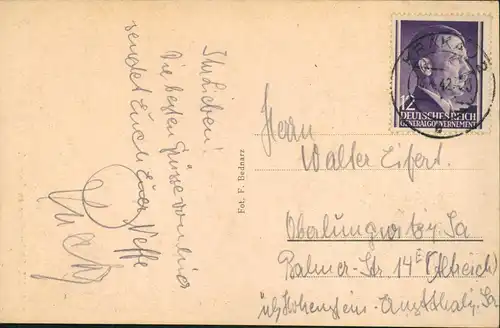 Ihr Lieben!
Die besten Grüsse von hier
sendet Euch Euer Neffe
Fot. F. Bednarz
12
DEUTSCHES REICH
GENERALGOUVERNEMENT
Herrn
Walter Eifert.
Oberlungwitz Sa
Str 14 (Altreich)
üb/Hohenstein-Ernstthal, Sa